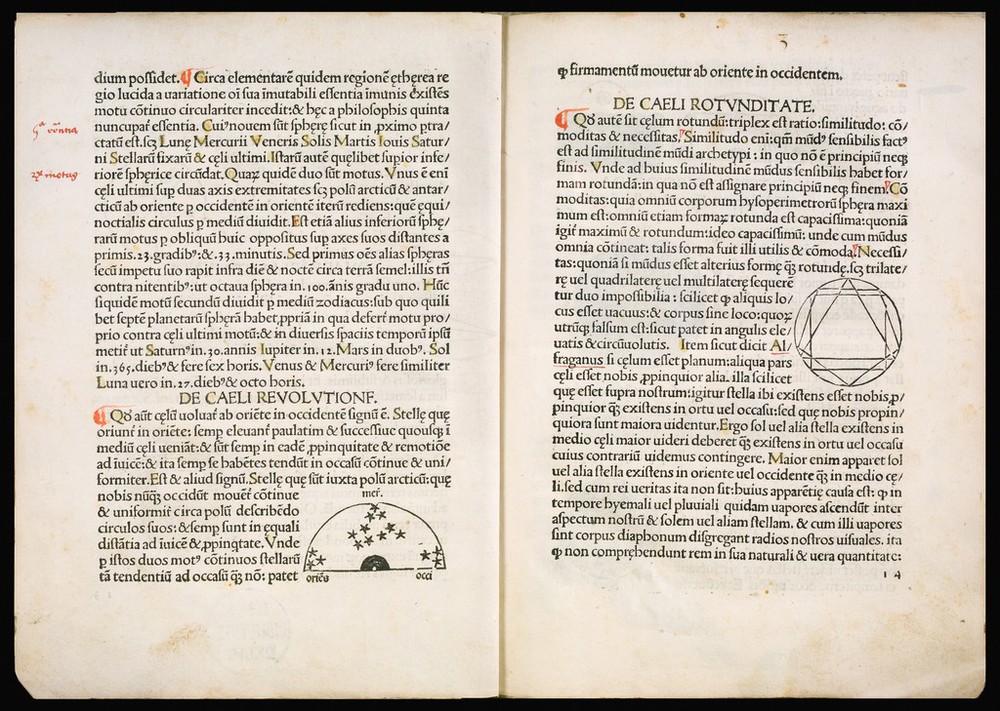 dium possidet. ¶ Circa elementarē quidem regionē ętherea re
gio lucida a uariatione oī sua īmutabili essentia īmunis existēs
motu cōtinuo circulariter incedit: & hęc a philosophis quinta
nuncupaƭ essentia. Cuiꝰ nouem sūt sphęrę sicut in ꝓximo ptra/
ctatū est. scꝫ Lunę Mercurii Veneris Solis Martis Iouis Satur/
ni Stellarū fixarū & cęli ultimi. Istarū autē quęlibet supior infe/
riorē sphęrice circūdat. Quaꝝ quidē duo sūt motus. Vnus ē enī
cęli ultimi sup duas axis extremitates scꝫ polū arcticū & antar/
cticū ab oriente p occidentē in orientē iterū rediens: quē ęqui/
noctialis circulus p mediū diuidit. Est etiā alius inferiorū sphę/
rarū motus p obliquū huic oppositus sup axes suos distantes a
primis. 23. gradibꝰ: & .33. minutis. Sed primus oēs alias sphęras
secū impetu suo rapit infra diē & noctē circa terrā semel: illis tn̄
contra nitentibꝰ: ut octaua sphęra in .100. ānis gradu uno. Hūc
siquidē motū secundū diuidit p mediū zodiacus: sub quo quili
bet septē planetarū sphęrā habet, ꝓpriā in qua deferƭ motu pro/
prio contra cęli ultimi motū: & in diuersis spaciis temporū ipsū
metiƭ ut Saturnꝰ in .30. annis Iupiter in .12. Mars in duobꝰ. Sol
in. 365. diebꝰ & fere sex horis. Venus & Mercuriꝰ fere similiter
Luna uero in .27. diebꝰ & octo horis.
DE CAELI REVOLVTIONE.
¶ Qđ aūt cęlū uoluaƭ ab oriēte in occidentē signū ē. Stellę quę
oriunƭ in oriēte: semp eleuanƭ paulatim & successiue quousqꝫ ī
mediū cęli ueniāt: & sūt semp in eadē ꝓpinquitate & remotiōe
ad iuicē: & ita semp se habētes tendūt in occasū cōtinue & uni/
formiter. Est & aliud signū. Stellę quę sūt iuxta polū arcticū: quę
nobis nūqꝫ occidūt mouēƭ cōtinue
& uniformiƭ circa polū describēdo
circulos suos: & semp sunt in ęquali
distātia ad iuicē & ꝓpinqtate. Vnde
p istos duos motꝰ cōtinuos stellarū
tā tendentiū ad occasū qꝫ nō: patet
meƭ.
oriēs occi
3
ꝙ firmamentū mouetur ab oriente in occidentem.
DE CAELI ROTVNDITATE.
¶ Qđ autē sit cęlum rotundū: triplex est ratio: similitudo: cō/
moditas & necessitas. Similitudo eni: qm̄ mūdꝰ sensibilis factꝰ
est ad similitudinē mūdi archetypi: in quo nō ē principiū neqꝫ
finis. Vnde ad huius similitudinē mūdus sensibilis habet for/
mam rotundā: in qua nō est assignare principiū neqꝫ finem. Cō
moditas: quia omniū corporum hysoperimetrorū sphęra maxi
mum est: omniū etiam formaꝝ rotunda est capacissima: quoniā
igiƭ maximū & rotundum: ideo capacissimū: unde cum mūdus
omnia cōtineat: talis forma fuit illi utilis & cōmoda. Necessi/
tas: quoniā si mūdus esset alterius formę qꝫ rotundę. scꝫ trilate/
rę uel quadrilaterę uel multilaterę sequere
tur duo impossibilia: scilicet ꝙ aliquis lo/
cus esset uacuus: & corpus sine loco: quoꝝ
utrūqꝫ falsum est: sicut patet in angulis ele/
uatis & circūuolutis. Item sicut dicit Al/
fraganus si cęlum esset planum: aliqua pars
cęli esset nobis ꝓpinquior alia. illa scilicet
quę esset supra nostrum: igitur stella ibi existens esset nobis ꝓ/
pinquior qꝫ existens in ortu uel occasu: sed quę nobis propin/
quiora sunt maiora uidentur. Ergo sol uel alia stella existens in
medio cęli maior uideri deberet qꝫ existens in ortu uel occasu
cuius contrariū uidemus contingere. Maior enim apparet sol
uel alia stella existens in oriente uel occidente qꝫ in medio cę/
li. sed cum rei ueritas ita non sit: huius apparētię causa est: ꝙ in
tempore hyemali uel pluuiali quidam uapores ascendūt inter
aspectum nostrū & solem uel aliam stellam. & cum illi uapores
sint corpus diaphonum disgregant radios nostros uisuales. ita
ꝙ non comprehendunt rem in sua naturali & uera quantitate: